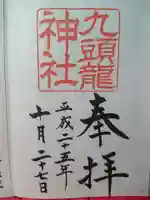 九頭龍
神社
奉拝
平成二十五年
十月二十七日